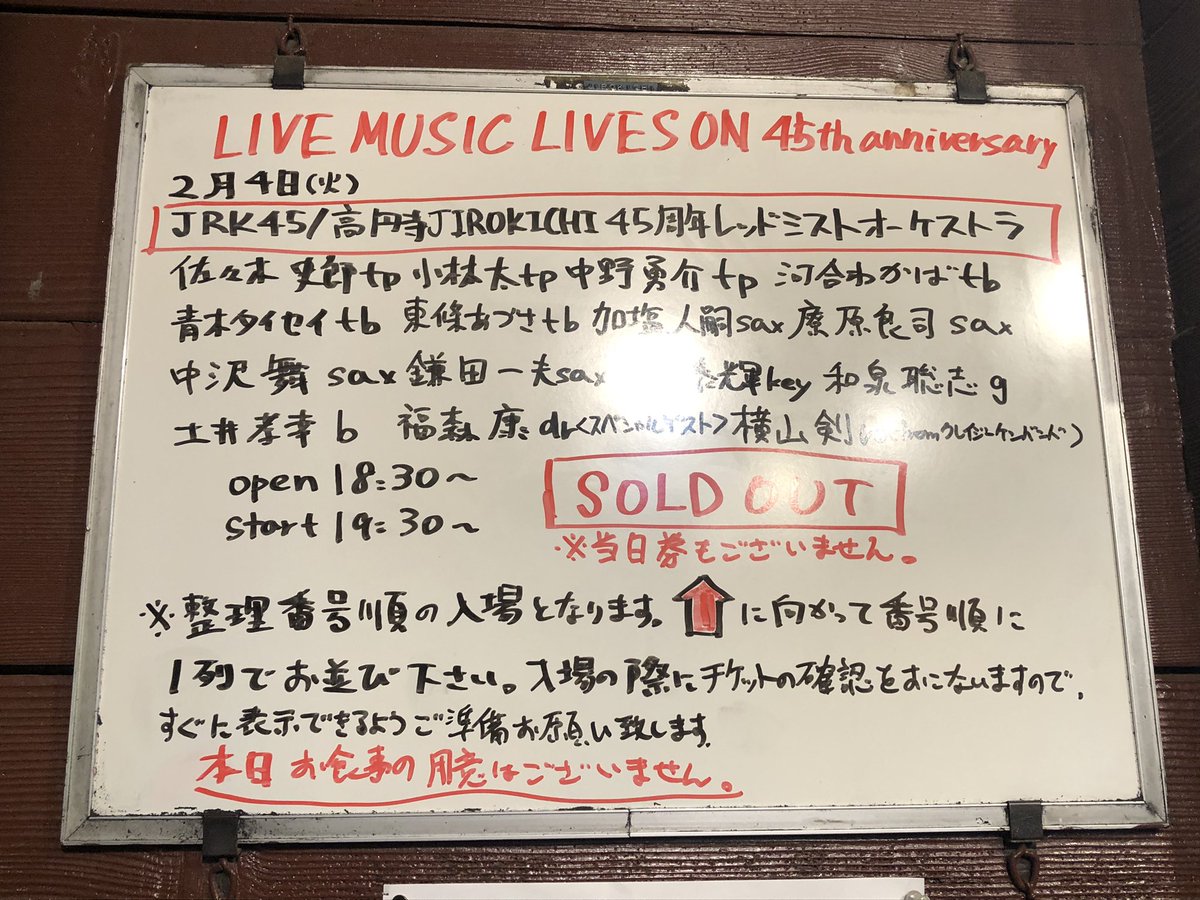 LIVE MUSIC LIVES ON 45th anniversary
2月4日(火)
JRK45/高円寺JIROKICHI 45周年レッドミストオーケストラ
佐々木 史郎tp 小林太tp 中野勇介tp 河合わかばtb
青木タイセイtb 東條あづさtb 加塩人嗣sax 廣原良司sax
中沢舞 sax 鎌田一夫sax 輝key 和泉聡志g
土井孝幸b 福森康dr<スペシャルゲスト>横山剣 fromクレイジーケンバンド)
open 18:30〜
start 19:30〜
SOLD OUT
※当日券もございません。
※整理番号順の入場となります。⬆に向かって番号順に
1列でお並び下さい。入場の際にチケットの確認をおこないますので、
すぐに表示できるようご準備お願い致します。
本日お食事の用意はございません。